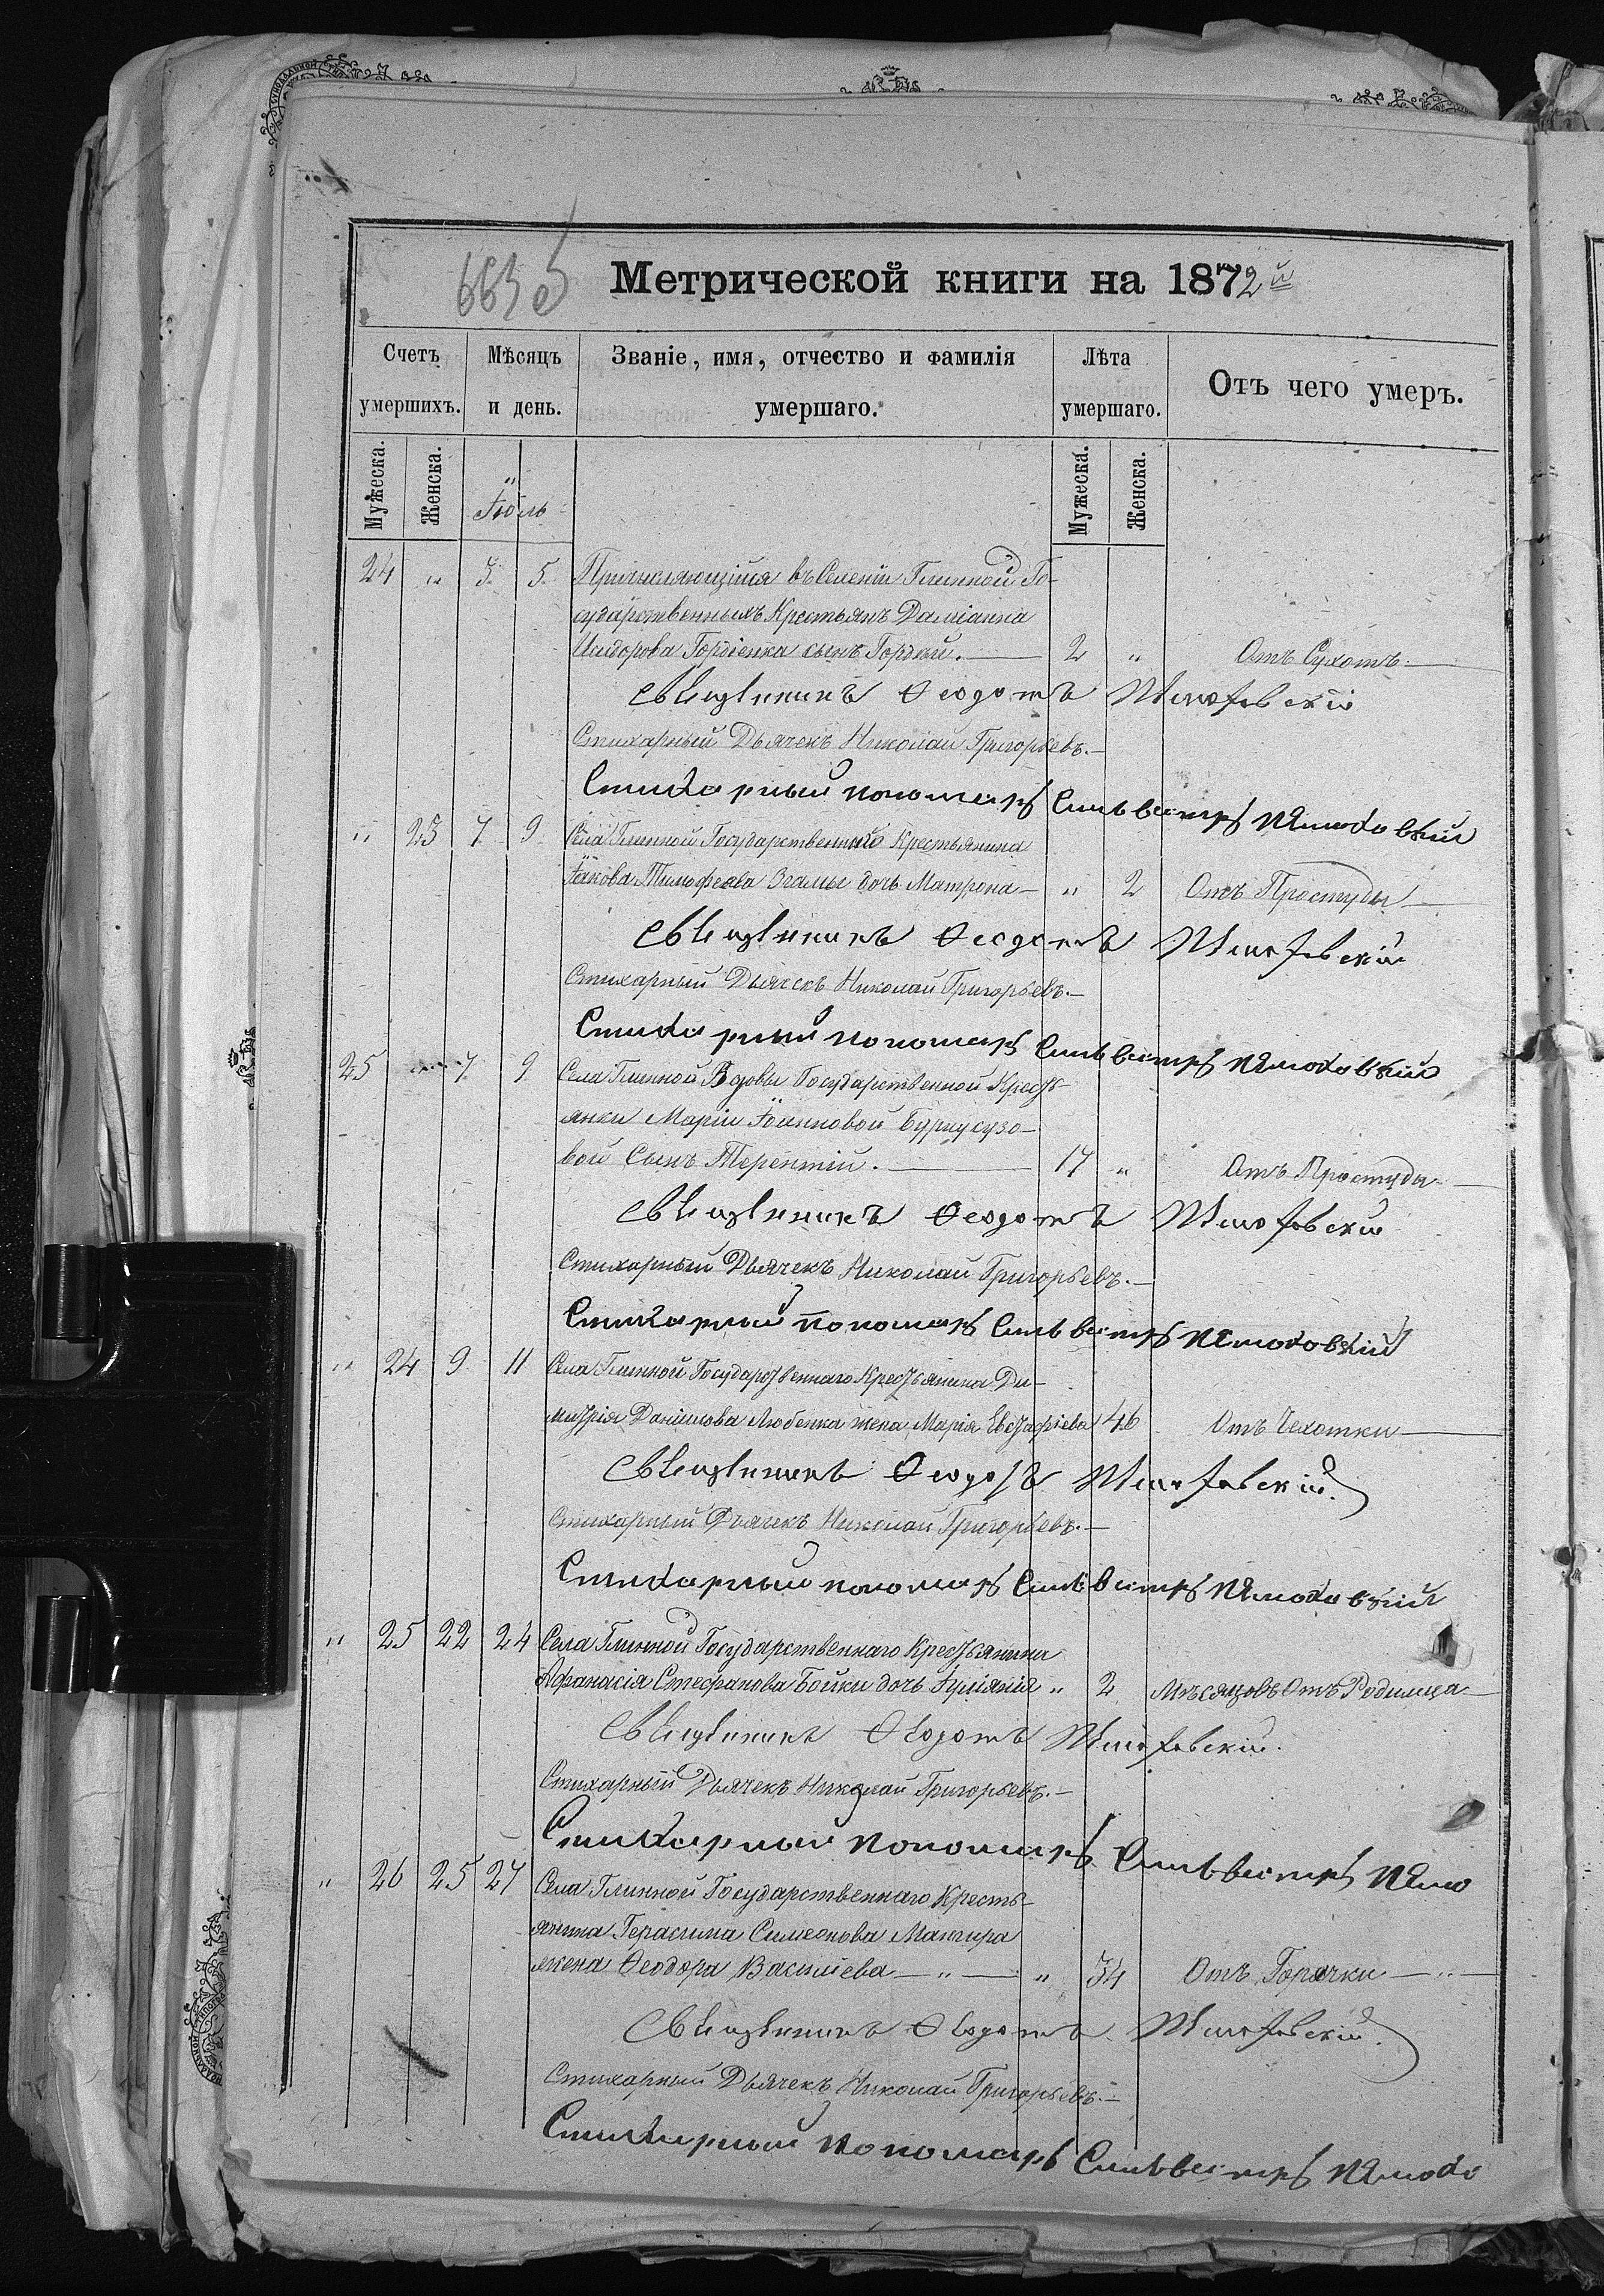 663 об
Метрической книги на 1872й
Счетъ умершихъ.
Мѣсяцъ и день.
Званіе, имя, отчество и фамилія умершаго.
Лѣта умершаго.
Отъ чего умеръ.
Мужеска.
Женска.
Іюль
Мужеска.
Женска.
24 " 3. 5. Причисляющійся въ Селеніи Глинной Го-
сударственныхъ Крестьянъ Даміанна
Исидорова Гордіенка сынъ Гордѣй. 2 " Отъ Сухотъ.
Священникъ Ѳеодотъ
Стихарный Дьячекъ Николай Григорьевъ.
Стихарный пономарь Сильвестръ
" 25 7 9 Села Глинной Государственнаго Крестьянина
Іакова Тимофеева Згамы дочь Матрона " 2 Отъ Простуды
Священникъ Ѳеодотъ
Стихарный Дьячекъ Николай Григорьевъ.
Стихарный пономарь Сильвестръ
25 " 7 9 Села Глинной Вдовы Государственной Кресть-
янки Маріи Іоанновой Бурнусузо-
вой Сынъ Терентій. 17 " Отъ Простуды
Священникъ Ѳеодотъ
Стихарный Дьячекъ Николай Григорьевъ.
Стихарный пономарь Сильвестръ
" 24 9 11 Села Глинной Государственнаго Крестьянина Ди-
митрія Даніилова Любенка жена Марія Евстафіева 46 Отъ Чехотки
Священникъ Ѳеодотъ
Стихарный Дьячекъ Николай Григорьевъ.
Стихарный пономарь Сильвестръ
" 25 22 24 Села Глинной Государственнаго Крестьянина
Афанасія Стефанова Бойки дочь Іуліанія " 2 Мѣсяцовъ Отъ Родимца
Священникъ Ѳеодотъ
Стихарный Дьячекъ Николай Григорьевъ.
Стихарный пономарь Сильвестръ
" 26 25 27 Села Глинной Государственнаго Кресть-
янина Герасима Симеонова Мангира
жена Ѳеодора Василіева " " 34 Отъ Горячки "
Священникъ Ѳеодотъ
Стихарный Дьячекъ Николай Григорьевъ.
Стихарный пономарь Сильвестръ